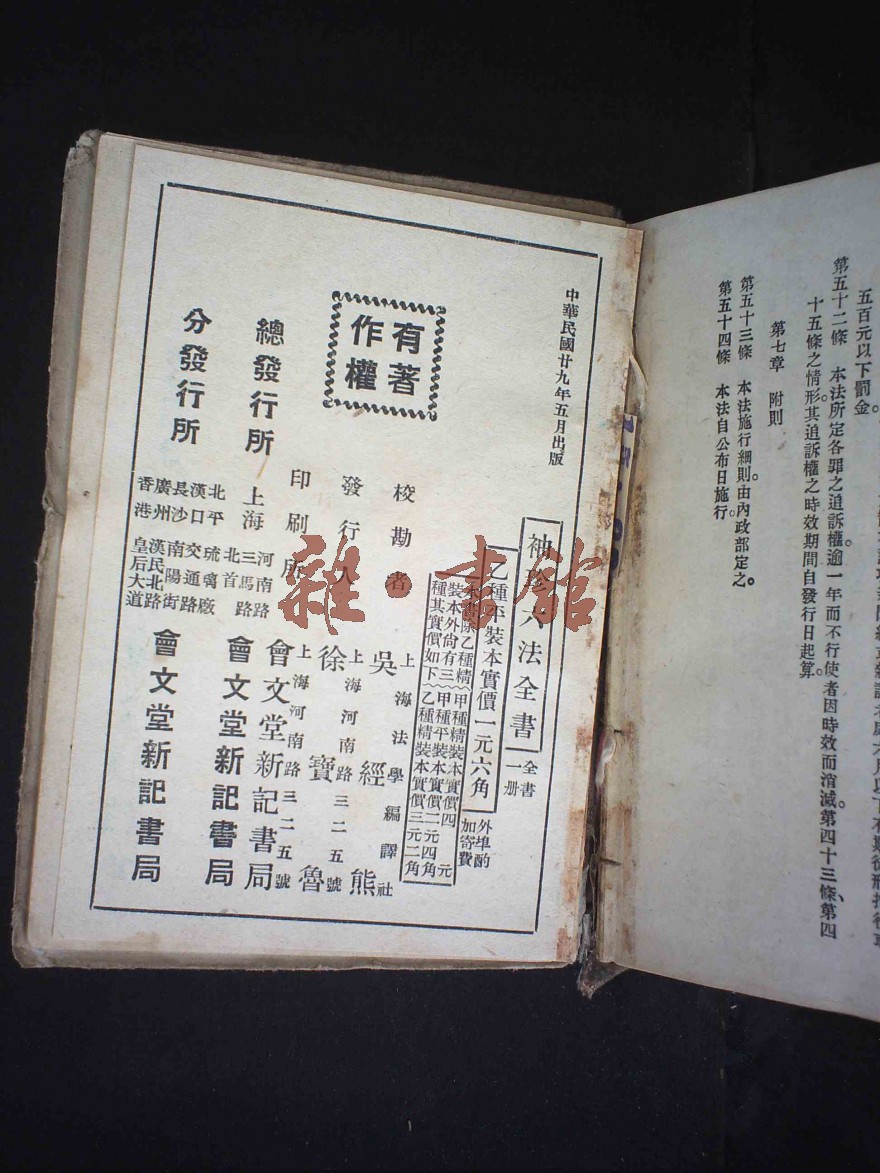 五百元以下罰金。
第五十二條　本法所定各罪之追訴權逾一年而不行使者因時效而消滅。第四十三條、第四
十五條之情形其追訴權之時效期間自發行日起算。
第七章　附則
第五十三條　本法施行細則由內政部定之。
第五十四條　本法自公布日施行。
中華民國廿九年五月出版
袖珍六法全書
全書一册
乙種平裝本實價一元六角
外埠酌加寄費
本書除乙種精
裝本外尙有三
種其實價如下
甲種精裝本實價四元
甲種平裝本實價二元四角
乙種精裝本實價三元二角
有著
作權
校勘者　上海法學編譯社
吳經熊
發行人　上海河南路三二五號
徐寶魯
印刷所　上海河南路三二五號
會文堂新記書局
總發行所　上海
河南路
三馬路
北首
會文堂新記書局
分發行所
北平　琉璃廠
漢口　交通路
長沙　南陽街
廣州　漢民北路
香港　皇后大道
會文堂新記書局
雜·書館